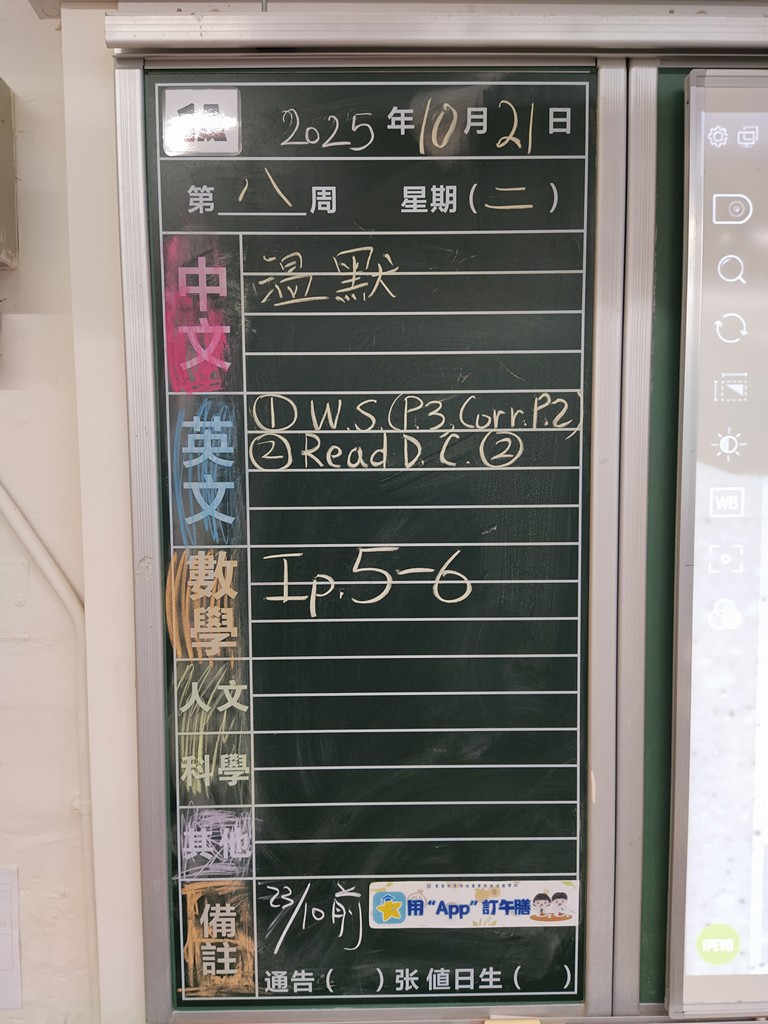 1A 2025年10月21日
第八周 星期(二)
中文
温默
英文
① W.S.(P.3,Corr.P.2)
② Read D.C. ②
數學
工p.5-6
人文
科學
其他
備註
23/10前
用“App”訂午膳
通告( )张 值日生( )
WB
IPEVO